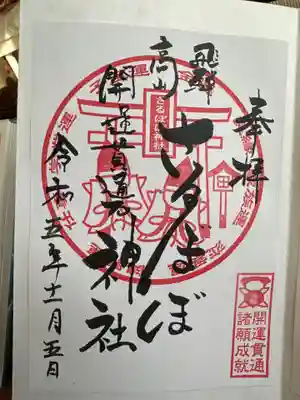 奉拝
飛騨
高山
さるぼぼ
神社
開運貫通
令和五年十一月五日
さるぼぼ神社
開運貫通
諸願成就